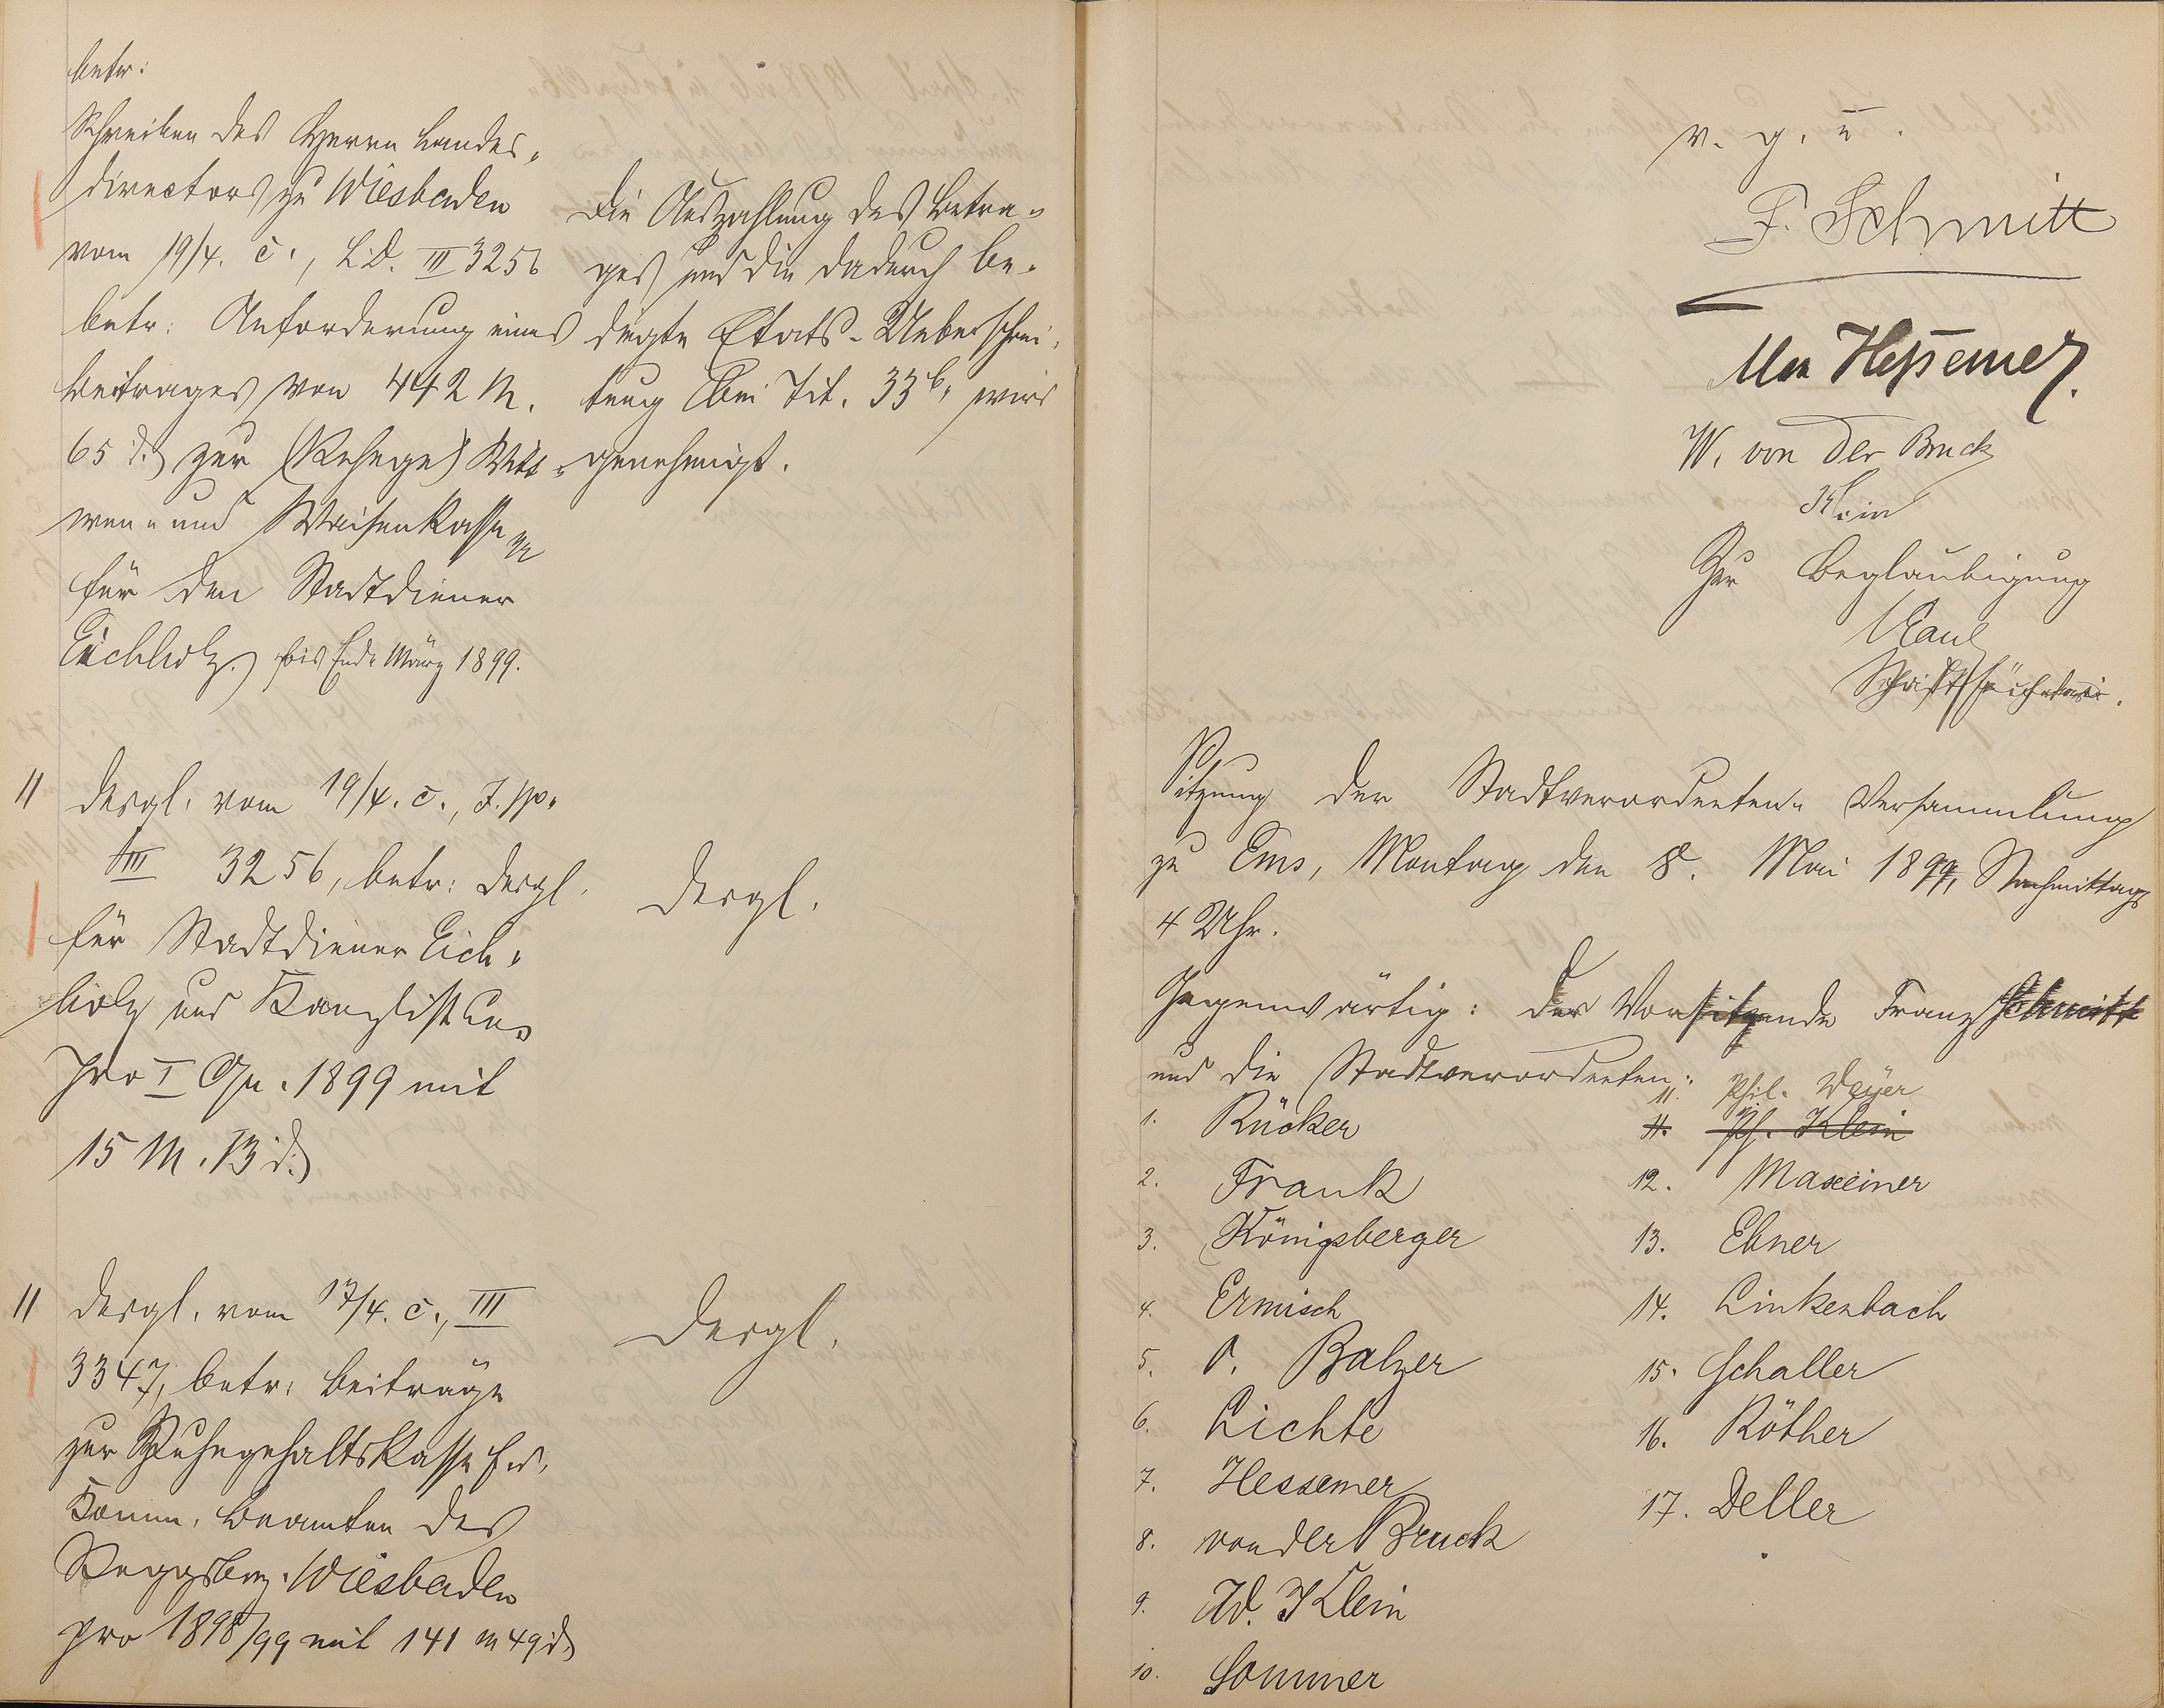 betr:
Schreiben des Herrn Landes-
directors zu Wiesbaden
vom 19/4. c., L.D. III 3256
betr: Anforderung eines
Beitrages von 442 M.
65 d. zur Wit-
wen- und Waisenkasse
für den Stadtdiener
Eichholz. bis Ende März 1899.
Die Auszahlung des Betra-
ges und die dadurch be-
dingte Etats-Ueberschrei-
tung bei Tit. 33b, wird
genehmigt.
11 desgl. vom 19/4. c., J. No.
III 3256, betr: desgl.
für Stadtdiener Eich-
holz und Kanzlist
pro I Qu. 1899 mit
15 M. 13 d.
desgl.
11 desgl. vom 17/4. c., III
3347, betr: Beiträge
zur Ruhegehaltskasse f. d.
Komm. Beamten des
Reggsbez. Wiesbaden
pro 1898/99 mit 141 M 49 d.
desgl.
v. g. u.
F. Schmitt
Max Hessemer.
W. von der Bruck
Klein
Zur Beglaubigung
Kaul
Schriftführer
Sitzung der Stadtverordneten-Versammlung
zu Ems, Montag den 8. Mai 1899, Nachmittags
4 Uhr.
Gegenwärtig: Der Vorsitzende Franz Schmitt
und die Stadtverordneten:
1. Rücker
2. Frank
3. Königsberger
4. Ermisch
5. O. Balzer
6. Lichte
7. Hessemer
8. von der Bruck
9. Ad. Klein
10. Sommer
11. Phil. Weyer
11. Ph. Klein
12. Maxeiner
13. Ebner
14. Linkenbach
15. Schaller
16. Röther
17. Deller